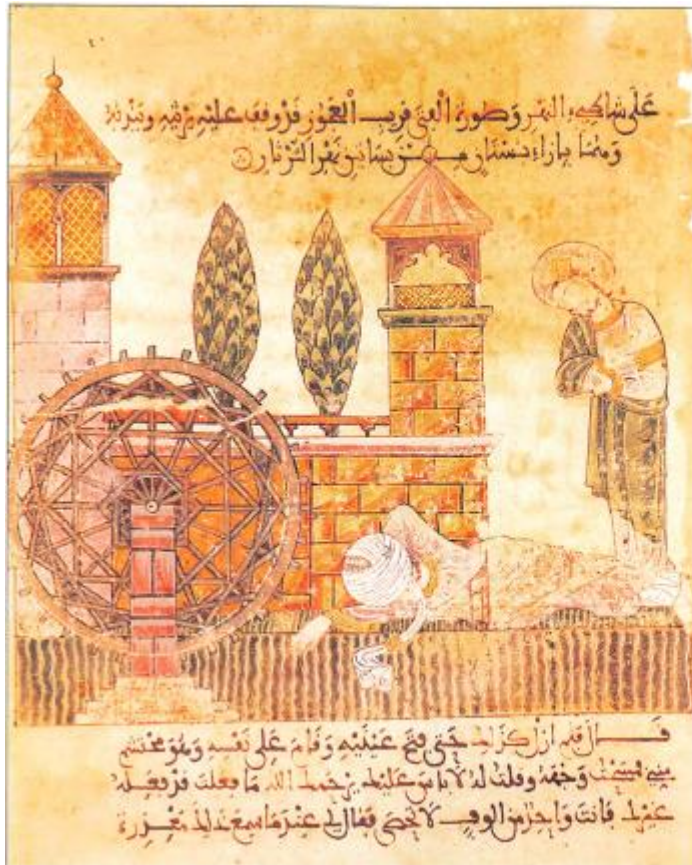 على شاطىء النهر وصورة الفتى قريب العجوز قد وقف عليه يرثيه ويندبه
وهما بازاء بستان من بساتين نهر الثرثار
قال فلم ازل كذلك حتى فتح عينيه وقام على نفسه وهو محتشم
مني فمسحت وجهه وقلت له لا باس عليك يرحمك الله ما فعلت قد فعله
غيرك فانت واحد من الوف لا تحصى فقال لي عندما سمع ذلك معذرة